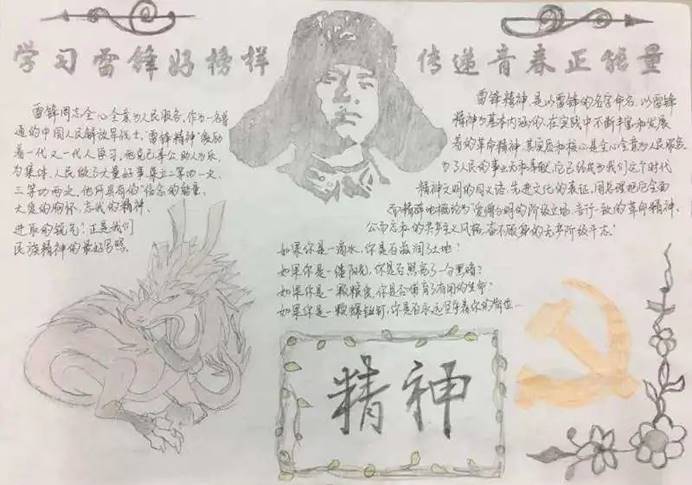 学习雷锋好榜样
传递音春正能量
雷锋同志全心全意为人民服务，作为一名普
通的中国人民解放军战士，雷锋精神激励
着一代又一代人学习，他克己奉公助人为乐，
为集体，人民做了大量好事荣立二等功一次，
三等功两次，他所具有的信念的能量、
大度的胸怀、忘我的精神、
进取的锐气！正是我们
民族精神的最好写照。
雷锋精神，是以雷锋的名字命名，以雷锋
精神为基本内涵的、在实践中不断丰富和发展
着的革命精神，其实质和核心是全心全意为人民服务，
为了人民的事业无私奉献，它已经成为我们这个时代
精神文明的同义语、先进文化的表征，周总理把它全面
而精辟地概括为"爱憎分明的阶级立场、言行一致的革命精神、
公而忘私的共产主义风格、奋不顾身的无产阶级斗志！
如果你是一滴水，你是否滋润了土地？
如果你是一缕阳光，你是否照亮了一分黑暗？
如果你是一颗粮食，你是否哺育了有用的生命？
如果你是一颗螺丝钉，你是否永远坚守着你的岗位
精神